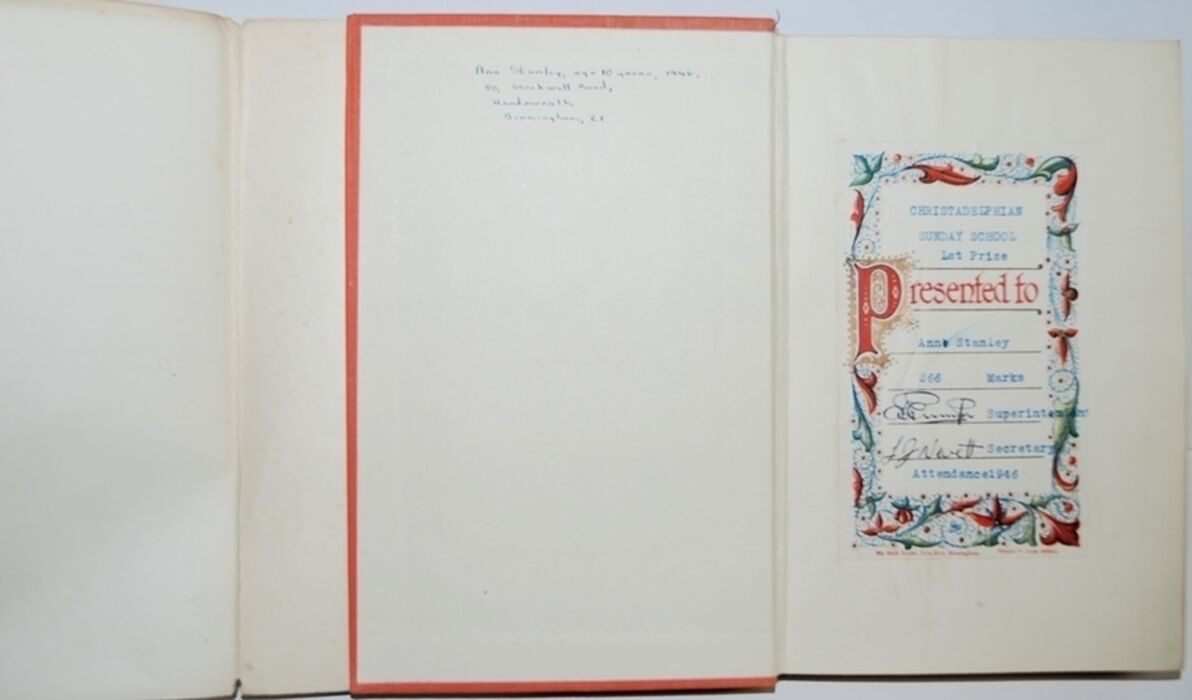 Ann Stanley, age 10 years, 1946,
Stockwell Road,
Handsworth,
Birmingham, 21
CHRISTADELPHIAN
SUNDAY SCHOOL
1st Prize
Presented to
Ann Stanley
266 Marks
Superintendent
Secretary
Attendance1946